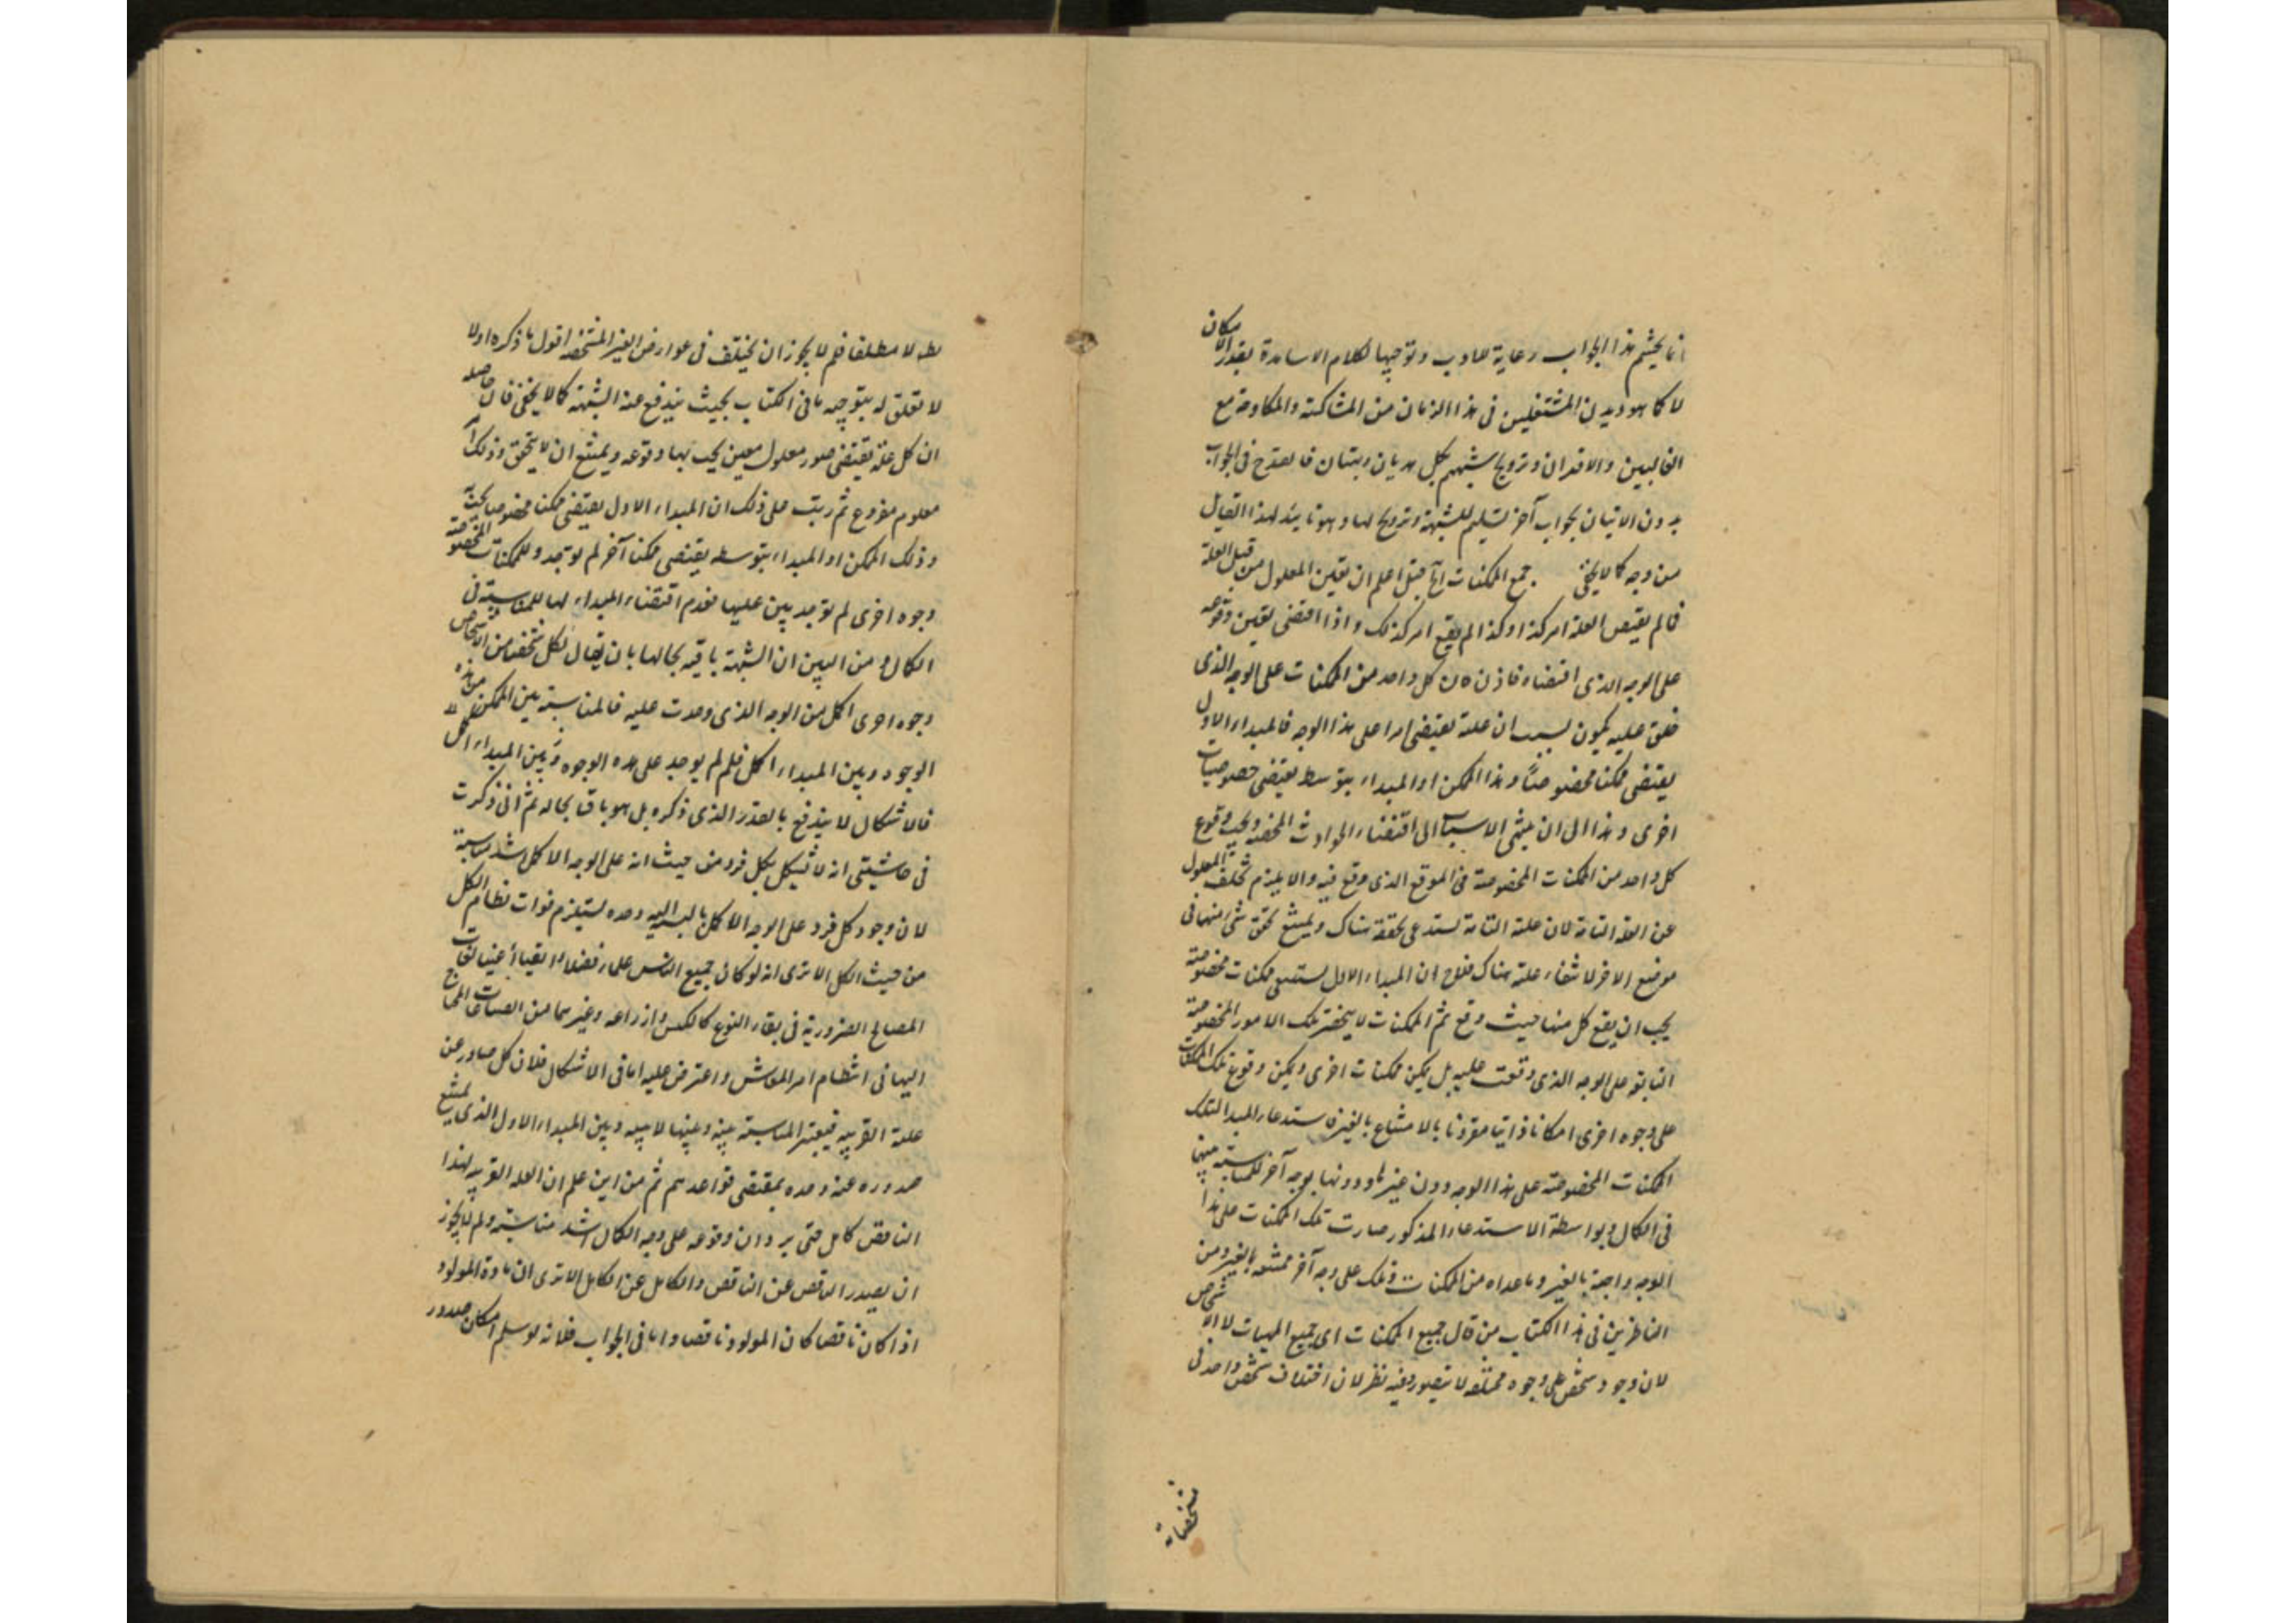 انما يحشم هذا الجواب رعاية للادب وتوجيها لكلام الاساتذة بقدر الامكان
لا كما هو ديدن المشتغلين في هذا الزمان من المشاكسة والمكاوحة مع
الغالبين والاقدان وترويج شبههم بكل هذيان وبهتان فالقدح في الجواب
بدون الاتيان بجواب آخر تسليم للشبهة وترويج لها وهو تائيد لهذا القيال
من وجه كما لا يخفى جمع الممكنات آه قيل اعلم ان تعين المعلول من قبل العلة
فما لم يقتض العلة امر كذا وكذا لم يقع امر كذلك واذا اقتضى تعين وقوعه
على الوجه الذي اقتضاه فاذن كان كل واحد من الممكنات على الوجه الذي
خلق عليه يكون بسبب ان علته يقتضي امرا على هذا الوجه فالمبداء الاول
يقتضي ممكنا مخصوصا وهذا الممكن او المبداء بتوسط يقتضي خصوصيات
اخرى وهذا الى ان ينتهي الاسباب الى اقتضاء الحوادث المخصوصة ويجب وقوع
كل واحد من الممكنات المخصوصة في الموقع الذي وقع فيه والا يلزم تخلف المعلول
عن العلة التامة لان علته التامة تستدعي تحققه هناك ويمتنع تحقق شيء منها في
موضع الاخر لانتفاء علته هناك فلاح ان المبداء الاول يستدعي ممكنات مخصوصة
يجب ان يقع كل منها حيث وقع ثم الممكنات لا ينحصر تلك الامور المخصوصة
الثابتة على الوجه الذي وقعت عليه بل يمكن ممكنات اخرى ويمكن وقوع تلك الممكنات
على وجوه اخرى امكانا ذاتيا مقرونا بالامتناع بالغير فاستدعاء المبدا لتلك
الممكنات المخصوصة على هذا الوجه دون غيرها ودونها بوجه آخر للمناسبة بينها
في الكمال وبواسطة الاستدعاء المذكور صارت تلك الممكنات على هذا
الوجه واجبة بالغير وما عداه من الممكنات وتلك على وجه آخر ممتنعة بالغير ومن
الناظرين في هذا الكتاب من قال جميع الممكنات اي جميع المهيات لا الاشخاص
لان وجود شخص على وجوه مختلفه لا يتصور وفيه نظر لان اختلاف شخص واحد في
تشخصاته
مطلقا فلم لا يجوز ان يختلف في عوارض الغير المشخصة اقول ما ذكره اولا
لا تعلق له بتوجيه ما في الكتاب بحيث يندفع عنه الشبهة كما لا يخفى فان حاصله
ان كل علة يقتضي صدور معلول معين يجب بها وقوعه ويمتنع ان لا يتحقق وذلك امر
معلوم مفروع ثم رتب على ذلك ان المبداء الاول يقتضي ممكنا مخصوصا بحيثيه
وذلك الممكن او المبداء بتوسطه يقتضي ممكنا آخر لم يوجد وللممكنات المخصوصة
وجوه اخرى لم توجد بين عليها فعدم اقتضاء المبداء لها للمناسبة في
الكمال ومن البين ان الشبهة باقية بحالها بان يقال لكل شخص من الاشخاص
وجوه اخرى اكمل من الوجه الذي وجدت عليه فالمناسبة بين الممكن من هذه
الوجوه وبين المبداء اكمل فلم لم يوجد على هذه الوجوه وبين المبداء اكمل
فالاشكال لا يندفع بالقدر الذي ذكره بل هو باق بحاله ثم اني ذكرت
في حاشيتي انه لا يشكل بكل فرد من حيث انه على الوجه الاكمل اشد مناسبة
لان وجود كل فرد على الوجه الاكمل بالنسبة اليه وحده يستلزم فوات نظام الكل
من حيث الكل الا ترى انه لو كان جميع الناس علماء فضلاء اتقياء اغنياء لفات
المصالح الضرورية في بقاء النوع كالكنس والزراعة وغيرهما من الصناعات المحتاج
اليها في انتظام امر المعاش واعترض عليه اما في الاشكال فلان كل صادر عن
علته القريبه فيعتبر المناسبة بينه وبينها لا بينه وبين المبداء الاول الذي يمتنع
صدوره عنه وحده بمقتضى قواعدهم ثم من اين علم ان العلة القريبه لهذا
الناقص كامل حتى يرد ان وقوعه على وجه الكمال اشد مناسبة ولم لا يجوز
ان يصدر الناقص عن الناقص والكامل عن الكامل الا ترى ان مادة المولود
اذا كان ناقصا كان المولود ناقصا واما في الجواب فلانه لو سلم امكان صدور